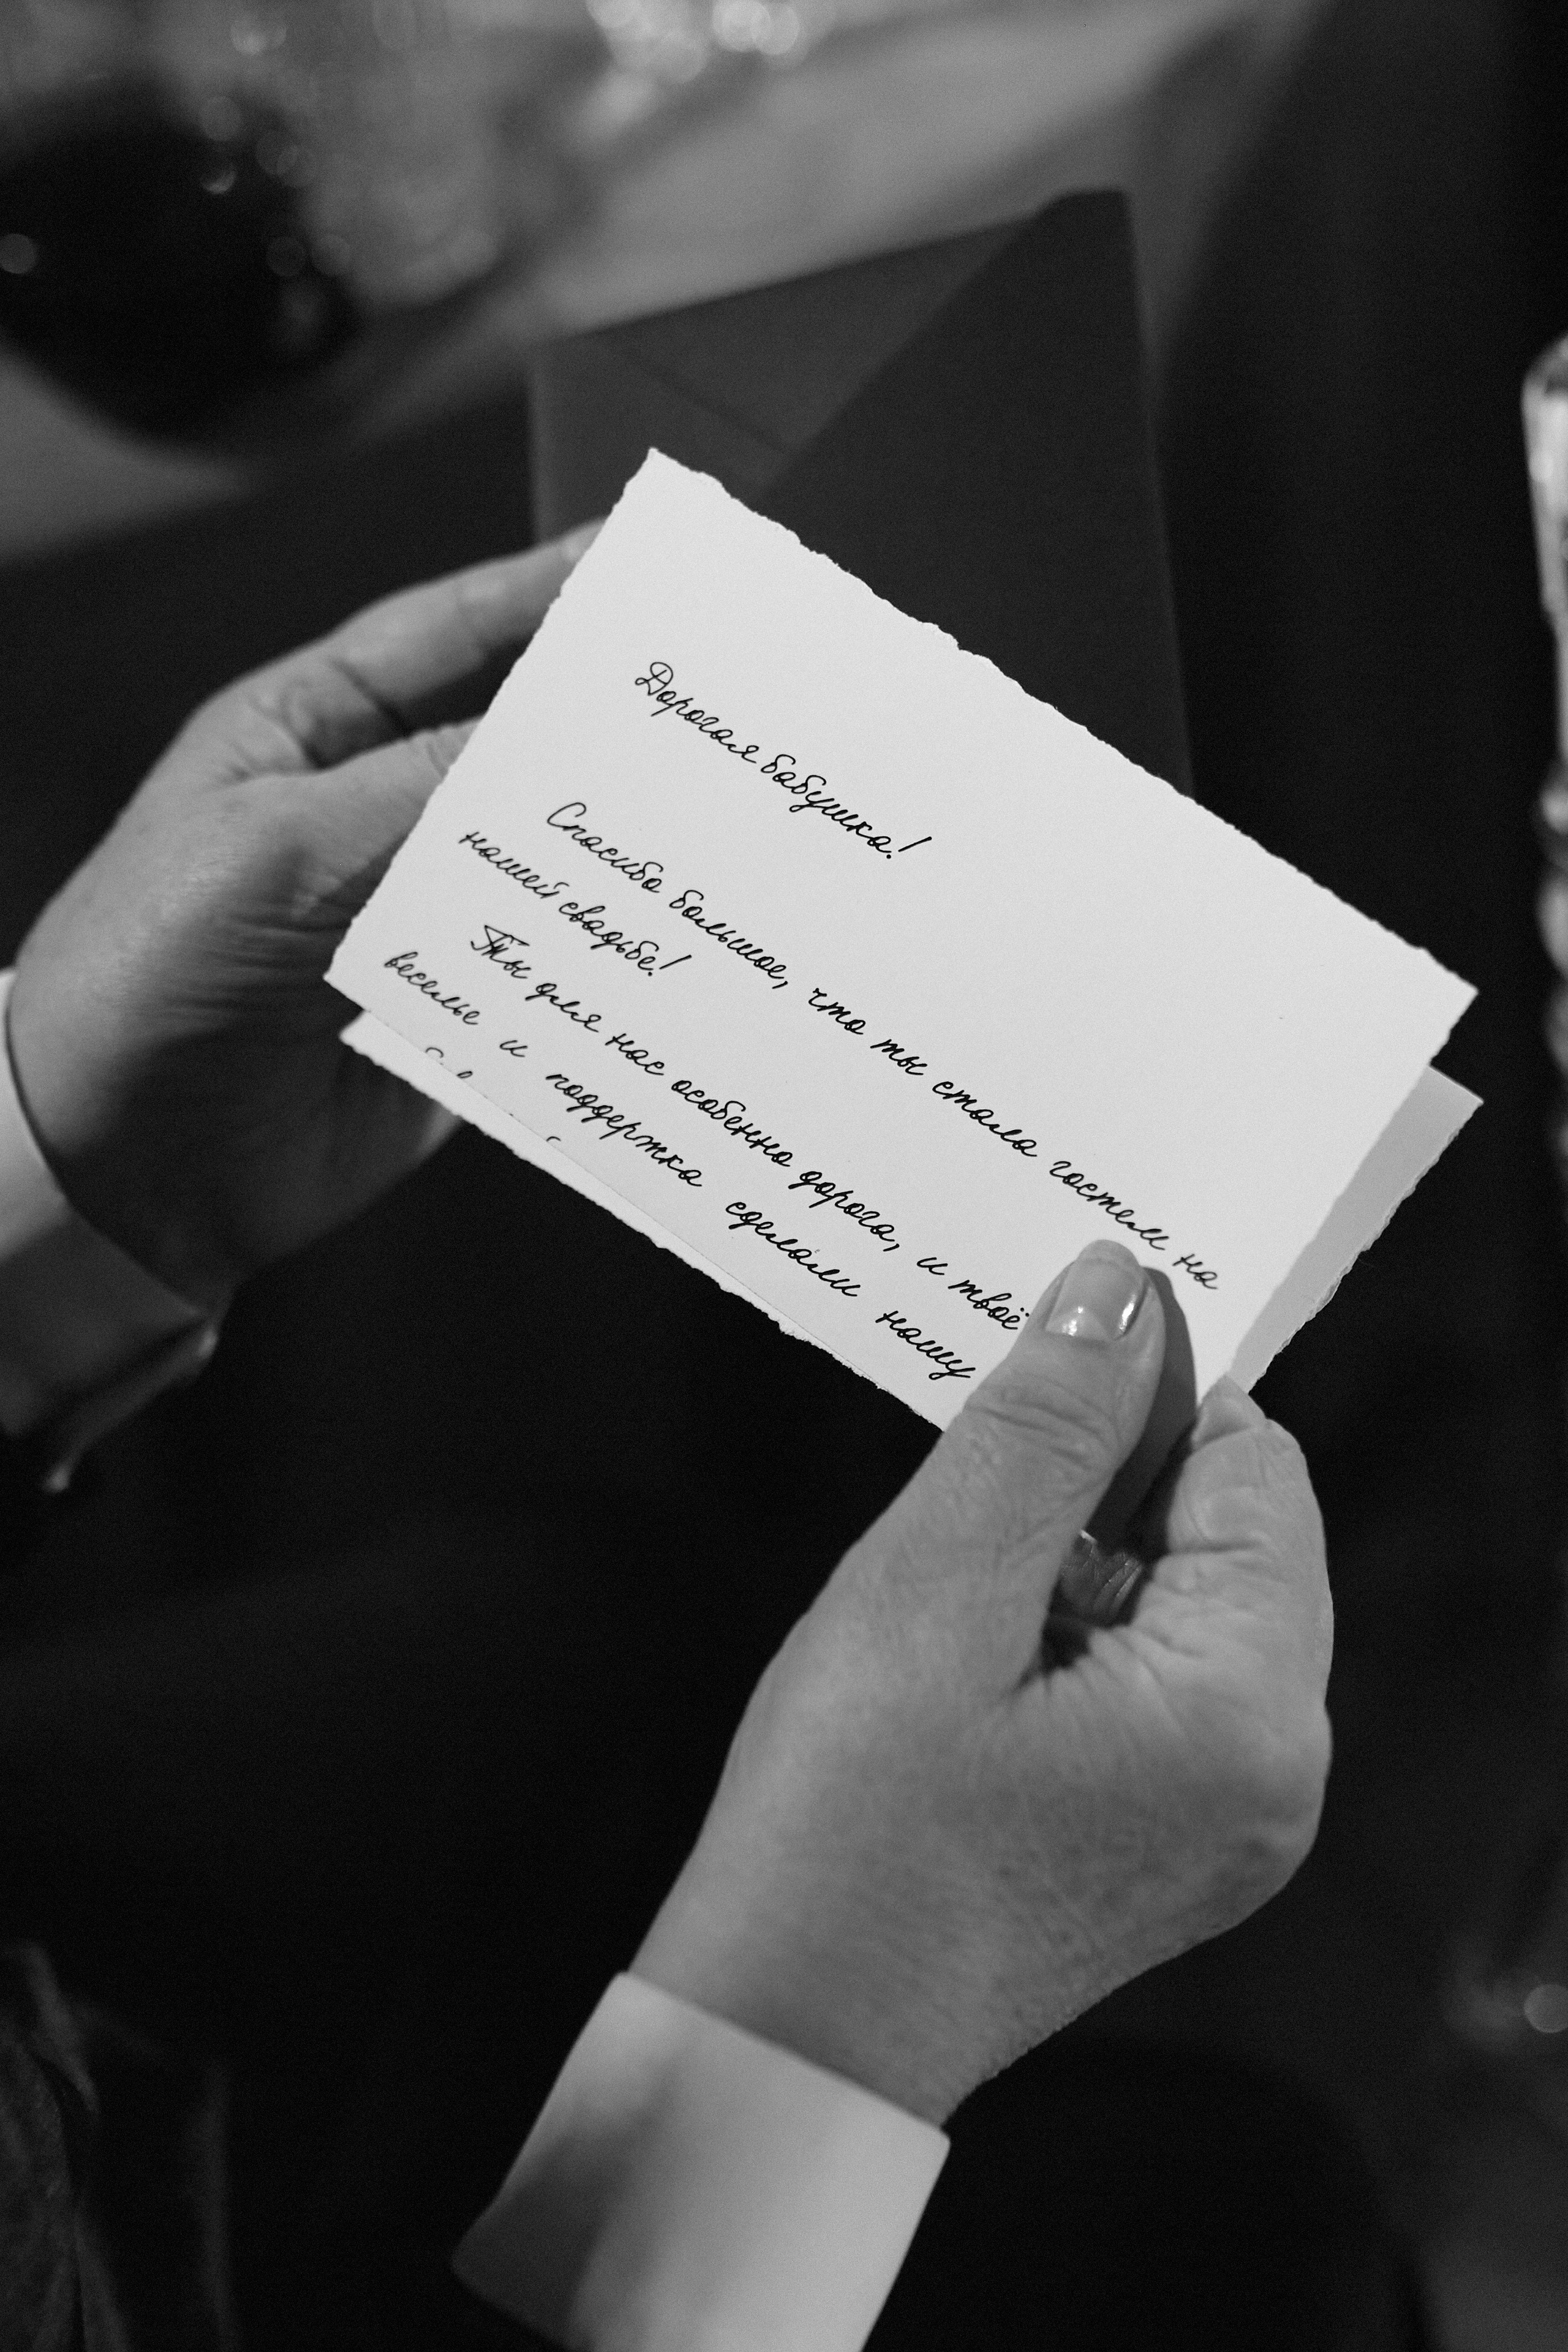 Дорогая бабушка!
Спасибо большое, что ты стала гостем на
нашей свадьбе!
Ты для нас особенно дорога, и твоё
веселье и поддержка сделали нашу